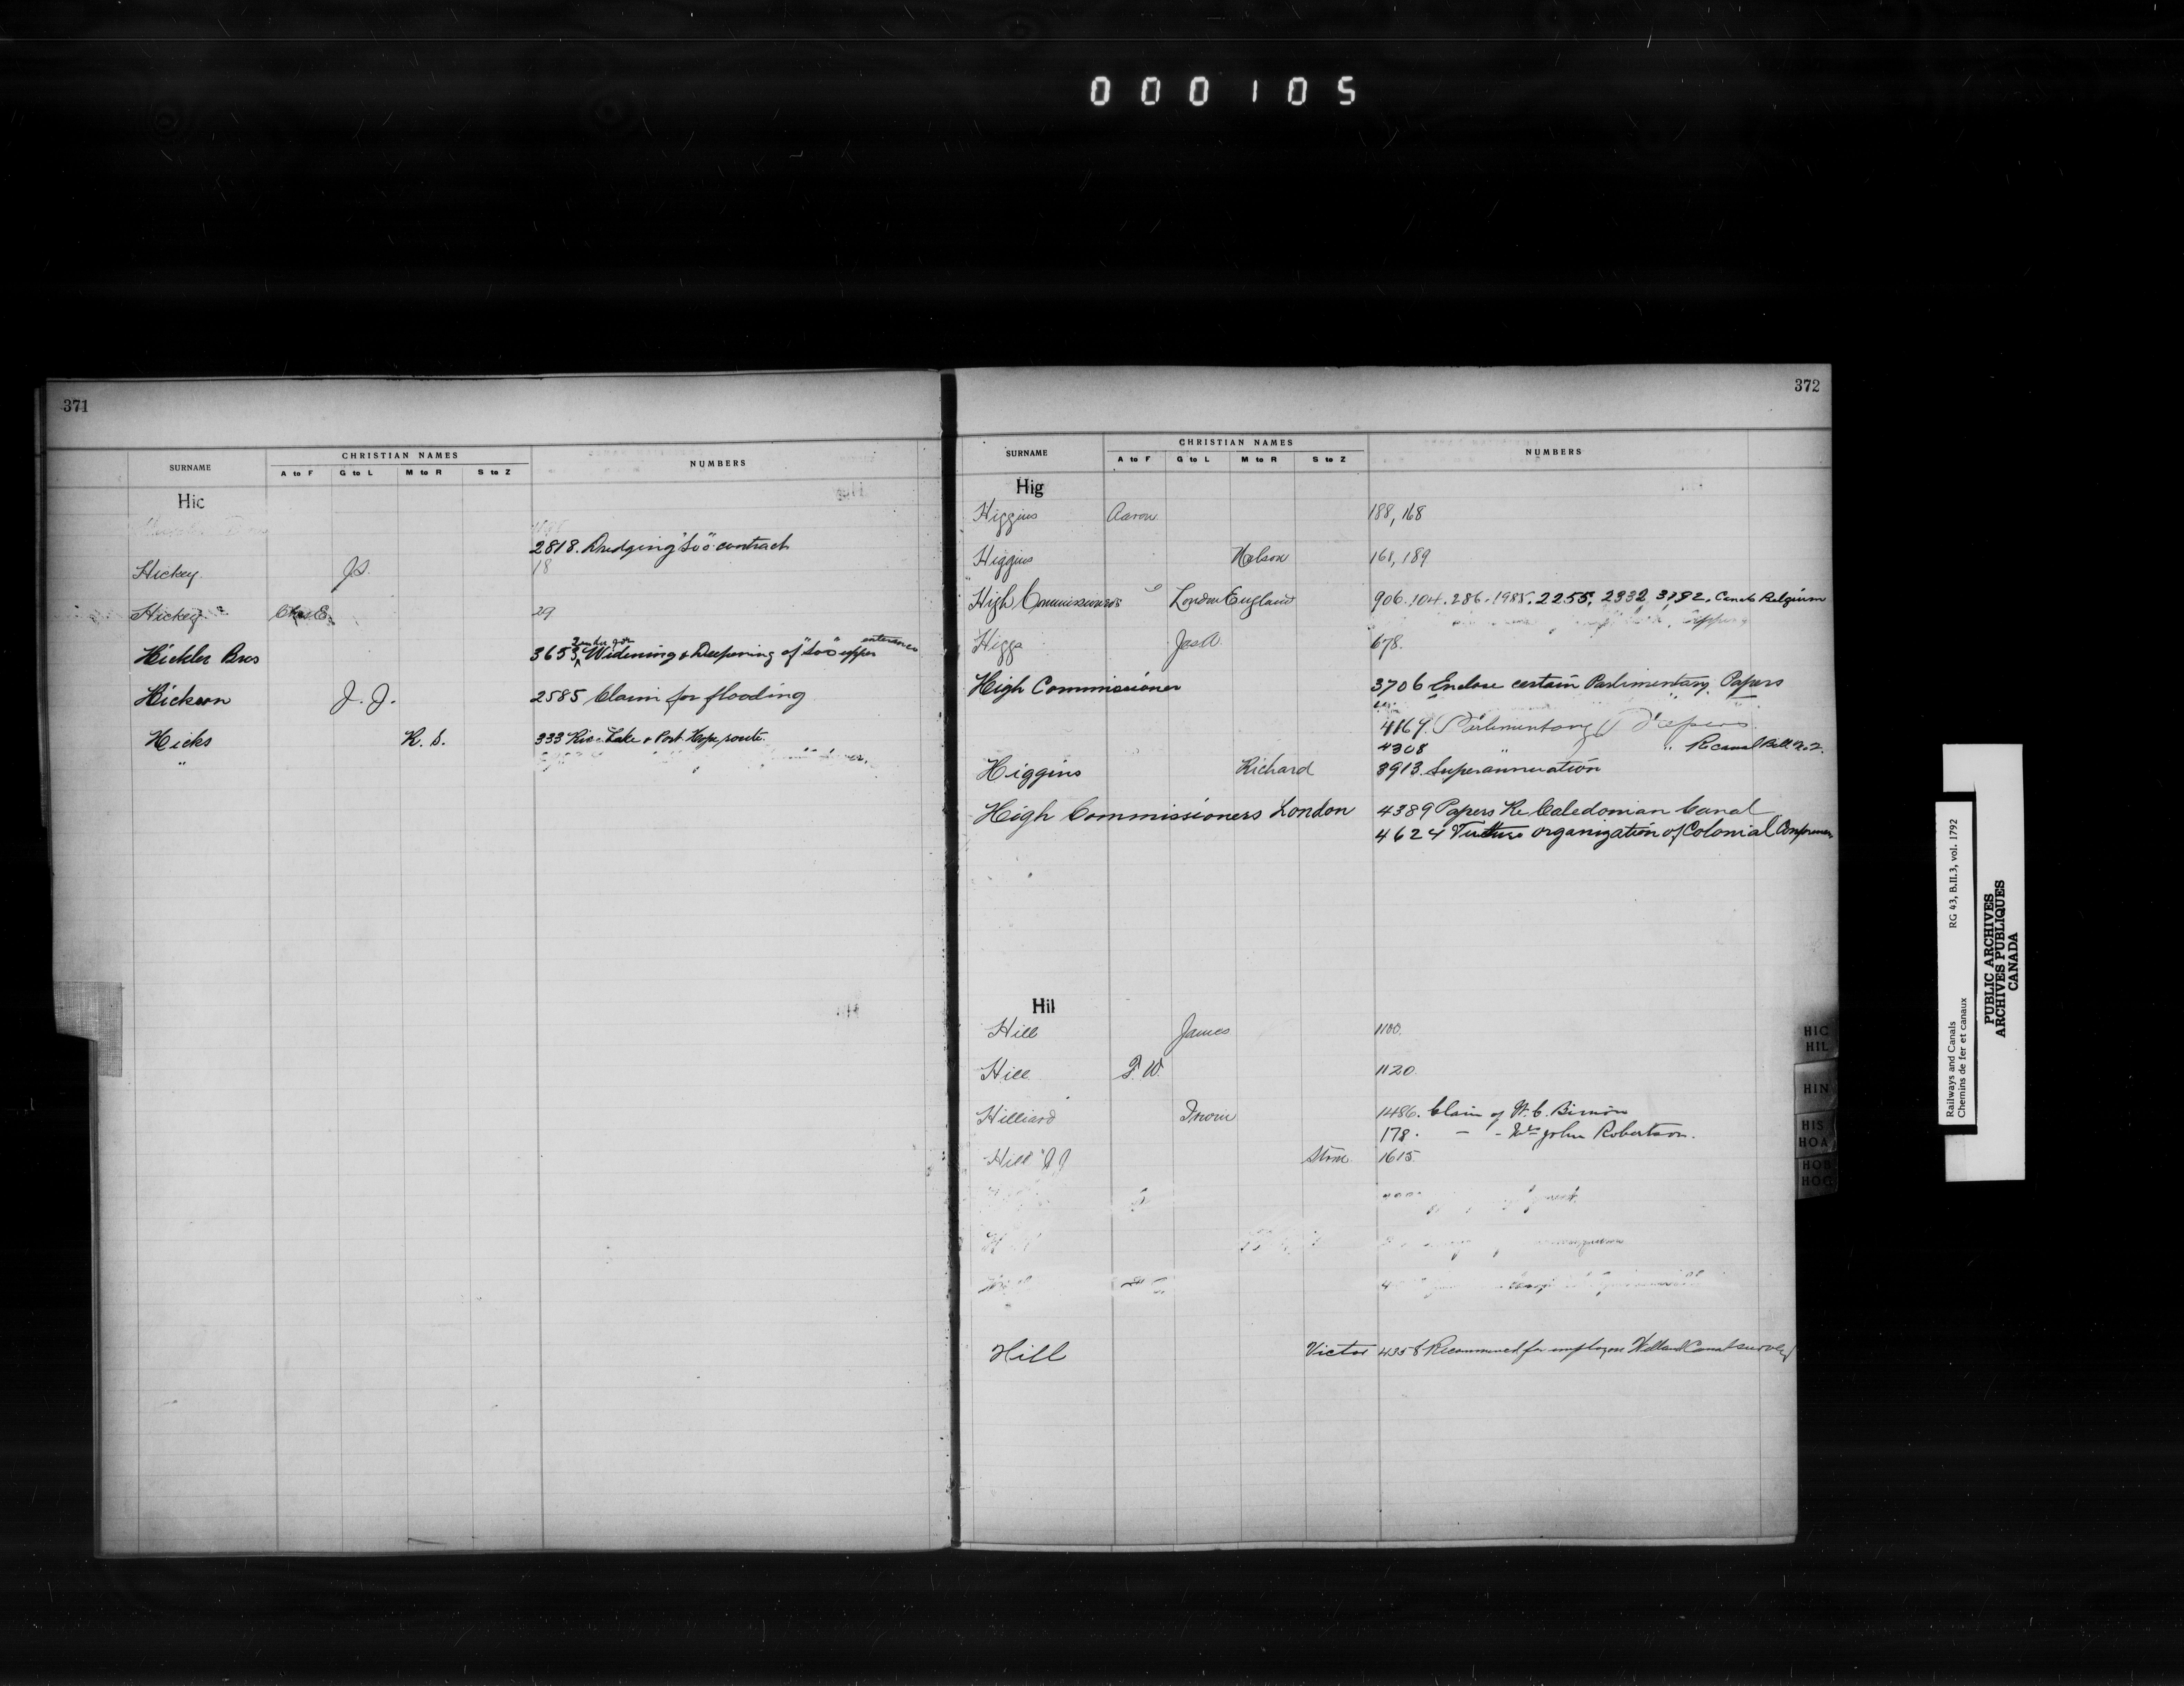 000105
371
SURNAME CHRISTIAN NAMES NUMBERS
A to F G to L M to R S to Z
Hic
2818. Dredging "Soo" contract
Hickey J.S. 18
Hickey Chas E. 29
Hickler Bros 3653 Widening & Deepening of "Soo" upper entrance
Hickson J. J. 2585 Claim for flooding
Hicks R. S. 333 Rice Lake & Port Hope route.
"
372
SURNAME CHRISTIAN NAMES NUMBERS
A to F G to L M to R S to Z
Hig
Higgins Aaron 188, 168
Higgins Nelson 168, 189
High Commissioners London England 906. 104. 286. 1985. 2255. 2332 3782. Canals Belgium
Higgs Jas A. 678.
High Commissioner 3706 Enclose certain Parlimentary Papers
4169. Parlimentary Papers
4308 " " Re canal Bill No 2.
Higgins Richard 3913. Superannuation
High Commissioners London 4389 Papers Re Caledonian Canal
4624 Future organization of Colonial Conference
Hil
Hill James 1100.
Hill F. W. 1120.
Hilliard Irvin 1486. Claim of W. C.
178. - - Mrs John Robertson.
Hill 1615.
Hill Victor 4358 Recommend for employ on Welland Canal survey
HIC
HIL
HIN
HIS
HOA
HOB
HOC
Railways and Canals RG 43, B.II.3, vol. 1792
Chemins de fer et canaux
PUBLIC ARCHIVES
ARCHIVES PUBLIQUES
CANADA